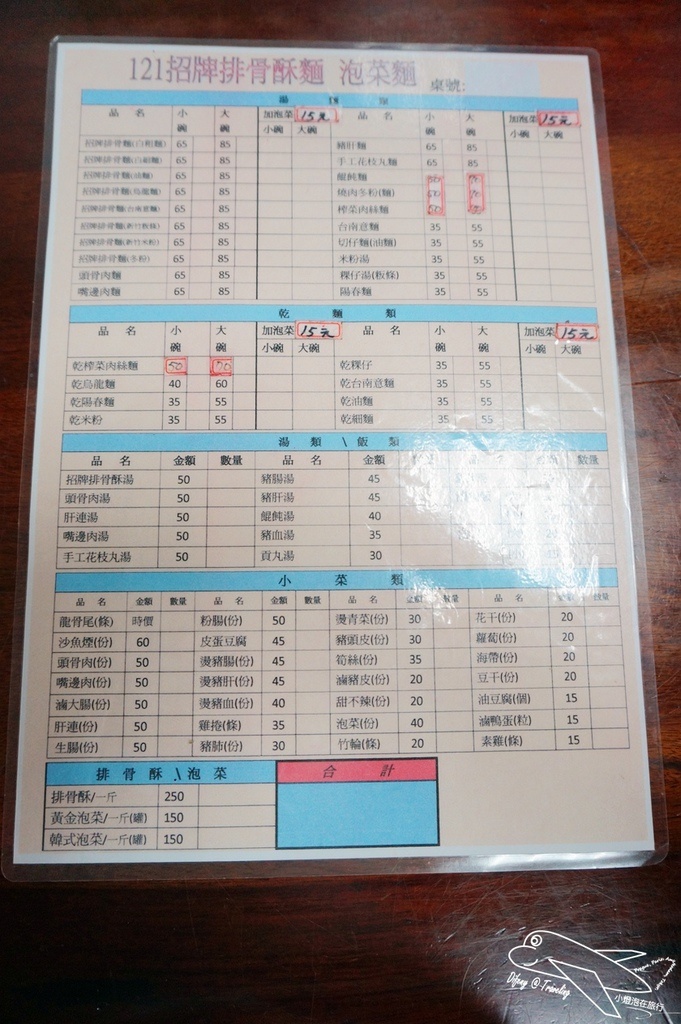 121招牌排骨酥麵 泡菜麵 桌號:
湯 類
品 名 小碗 大碗 加泡菜 15元 小碗 大碗 品 名 小碗 大碗 加泡菜 15元 小碗 大碗
招牌排骨麵(白粗麵) 65 85 豬肝麵 65 85
招牌排骨麵(白細麵) 65 85 手工花枝丸麵 65 85
招牌排骨麵(油麵) 65 85 餛飩麵
招牌排骨麵(烏龍麵) 65 85 燒肉冬粉(麵)
招牌排骨麵(台南意麵) 65 85 榨菜肉絲麵
招牌排骨麵(新竹粄條) 65 85 台南意麵 35 55
招牌排骨麵(新竹米粉) 65 85 切仔麵(油麵) 35 55
招牌排骨麵(冬粉) 65 85 米粉湯 35 55
頭骨肉麵 65 85 粿仔湯(粄條) 35 55
嘴邊肉麵 65 85 陽春麵 35 55
乾 麵 類
品 名 小碗 大碗 加泡菜 15元 小碗 大碗 品 名 小碗 大碗 加泡菜 15元 小碗 大碗
乾榨菜肉絲麵 50 70 乾粿仔 35 55
乾烏龍麵 40 60 乾台南意麵 35 55
乾陽春麵 35 55 乾油麵 35 55
乾米粉 35 55 乾細麵 35 55
湯 類 \ 飯 類
品 名 金額 數量 品 名 金額 數量
招牌排骨酥湯 50 豬腸湯 45
頭骨肉湯 50 豬肝湯 45
肝連湯 50 餛飩湯 40
嘴邊肉湯 50 豬血湯 35
手工花枝丸湯 50 貢丸湯 30
小 菜 類
品 名 金額 數量 品 名 金額 數量 品 名 金額 數量 品 名 金額 數量
龍骨尾(條) 時價 粉腸(份) 50 燙青菜(份) 30 花干(份) 20
沙魚煙(份) 60 皮蛋豆腐 45 豬頭皮(份) 30 蘿蔔(份) 20
頭骨肉(份) 50 燙豬腸(份) 45 筍絲(份) 35 海帶(份) 20
嘴邊肉(份) 50 燙豬肝(份) 45 滷豬皮(份) 20 豆干(份) 20
滷大腸(份) 50 燙豬血(份) 40 甜不辣(份) 20 油豆腐(個) 15
肝連(份) 50 雞捲(條) 35 泡菜(份) 40 滷鴨蛋(粒) 15
生腸(份) 50 豬肺(份) 30 竹輪(條) 20 素雞(條) 15
排 骨 酥 \ 泡 菜 合 計
排骨酥/一斤 250
黃金泡菜/一斤(罐) 150
韓式泡菜/一斤(罐) 150
Difeny @ Traveling
小燈泡在旅行